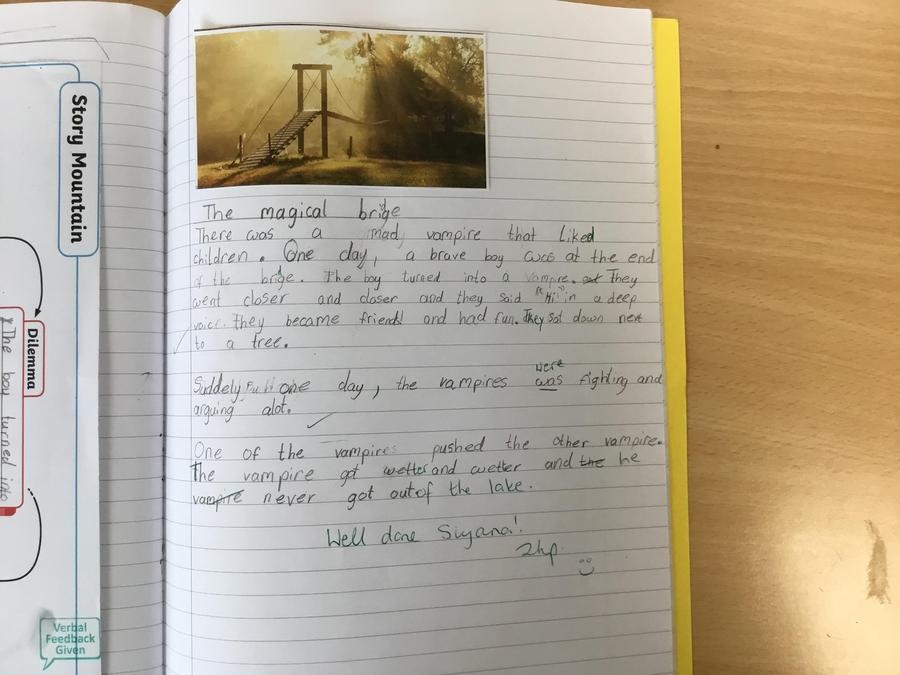 Story Mountain
Dilemma
The boy turned into
Verbal
Feedback
Given
The magical brige
There was a mad vampire that liked
children. One day, a brave boy was at the end
of the brige. The boy turned into a vampire. They
went closer and closer and they said "Hi!" in a deep
voice. They became friends and had fun. They sat down next
to a tree.
Suddely one day, the vampires was fighting and
were
arguing alot.
One of the vampires pushed the other vampire.
The vampire got wetter and wetter and the he
vampire never got out of the lake.
Well done Siyana!
2hp